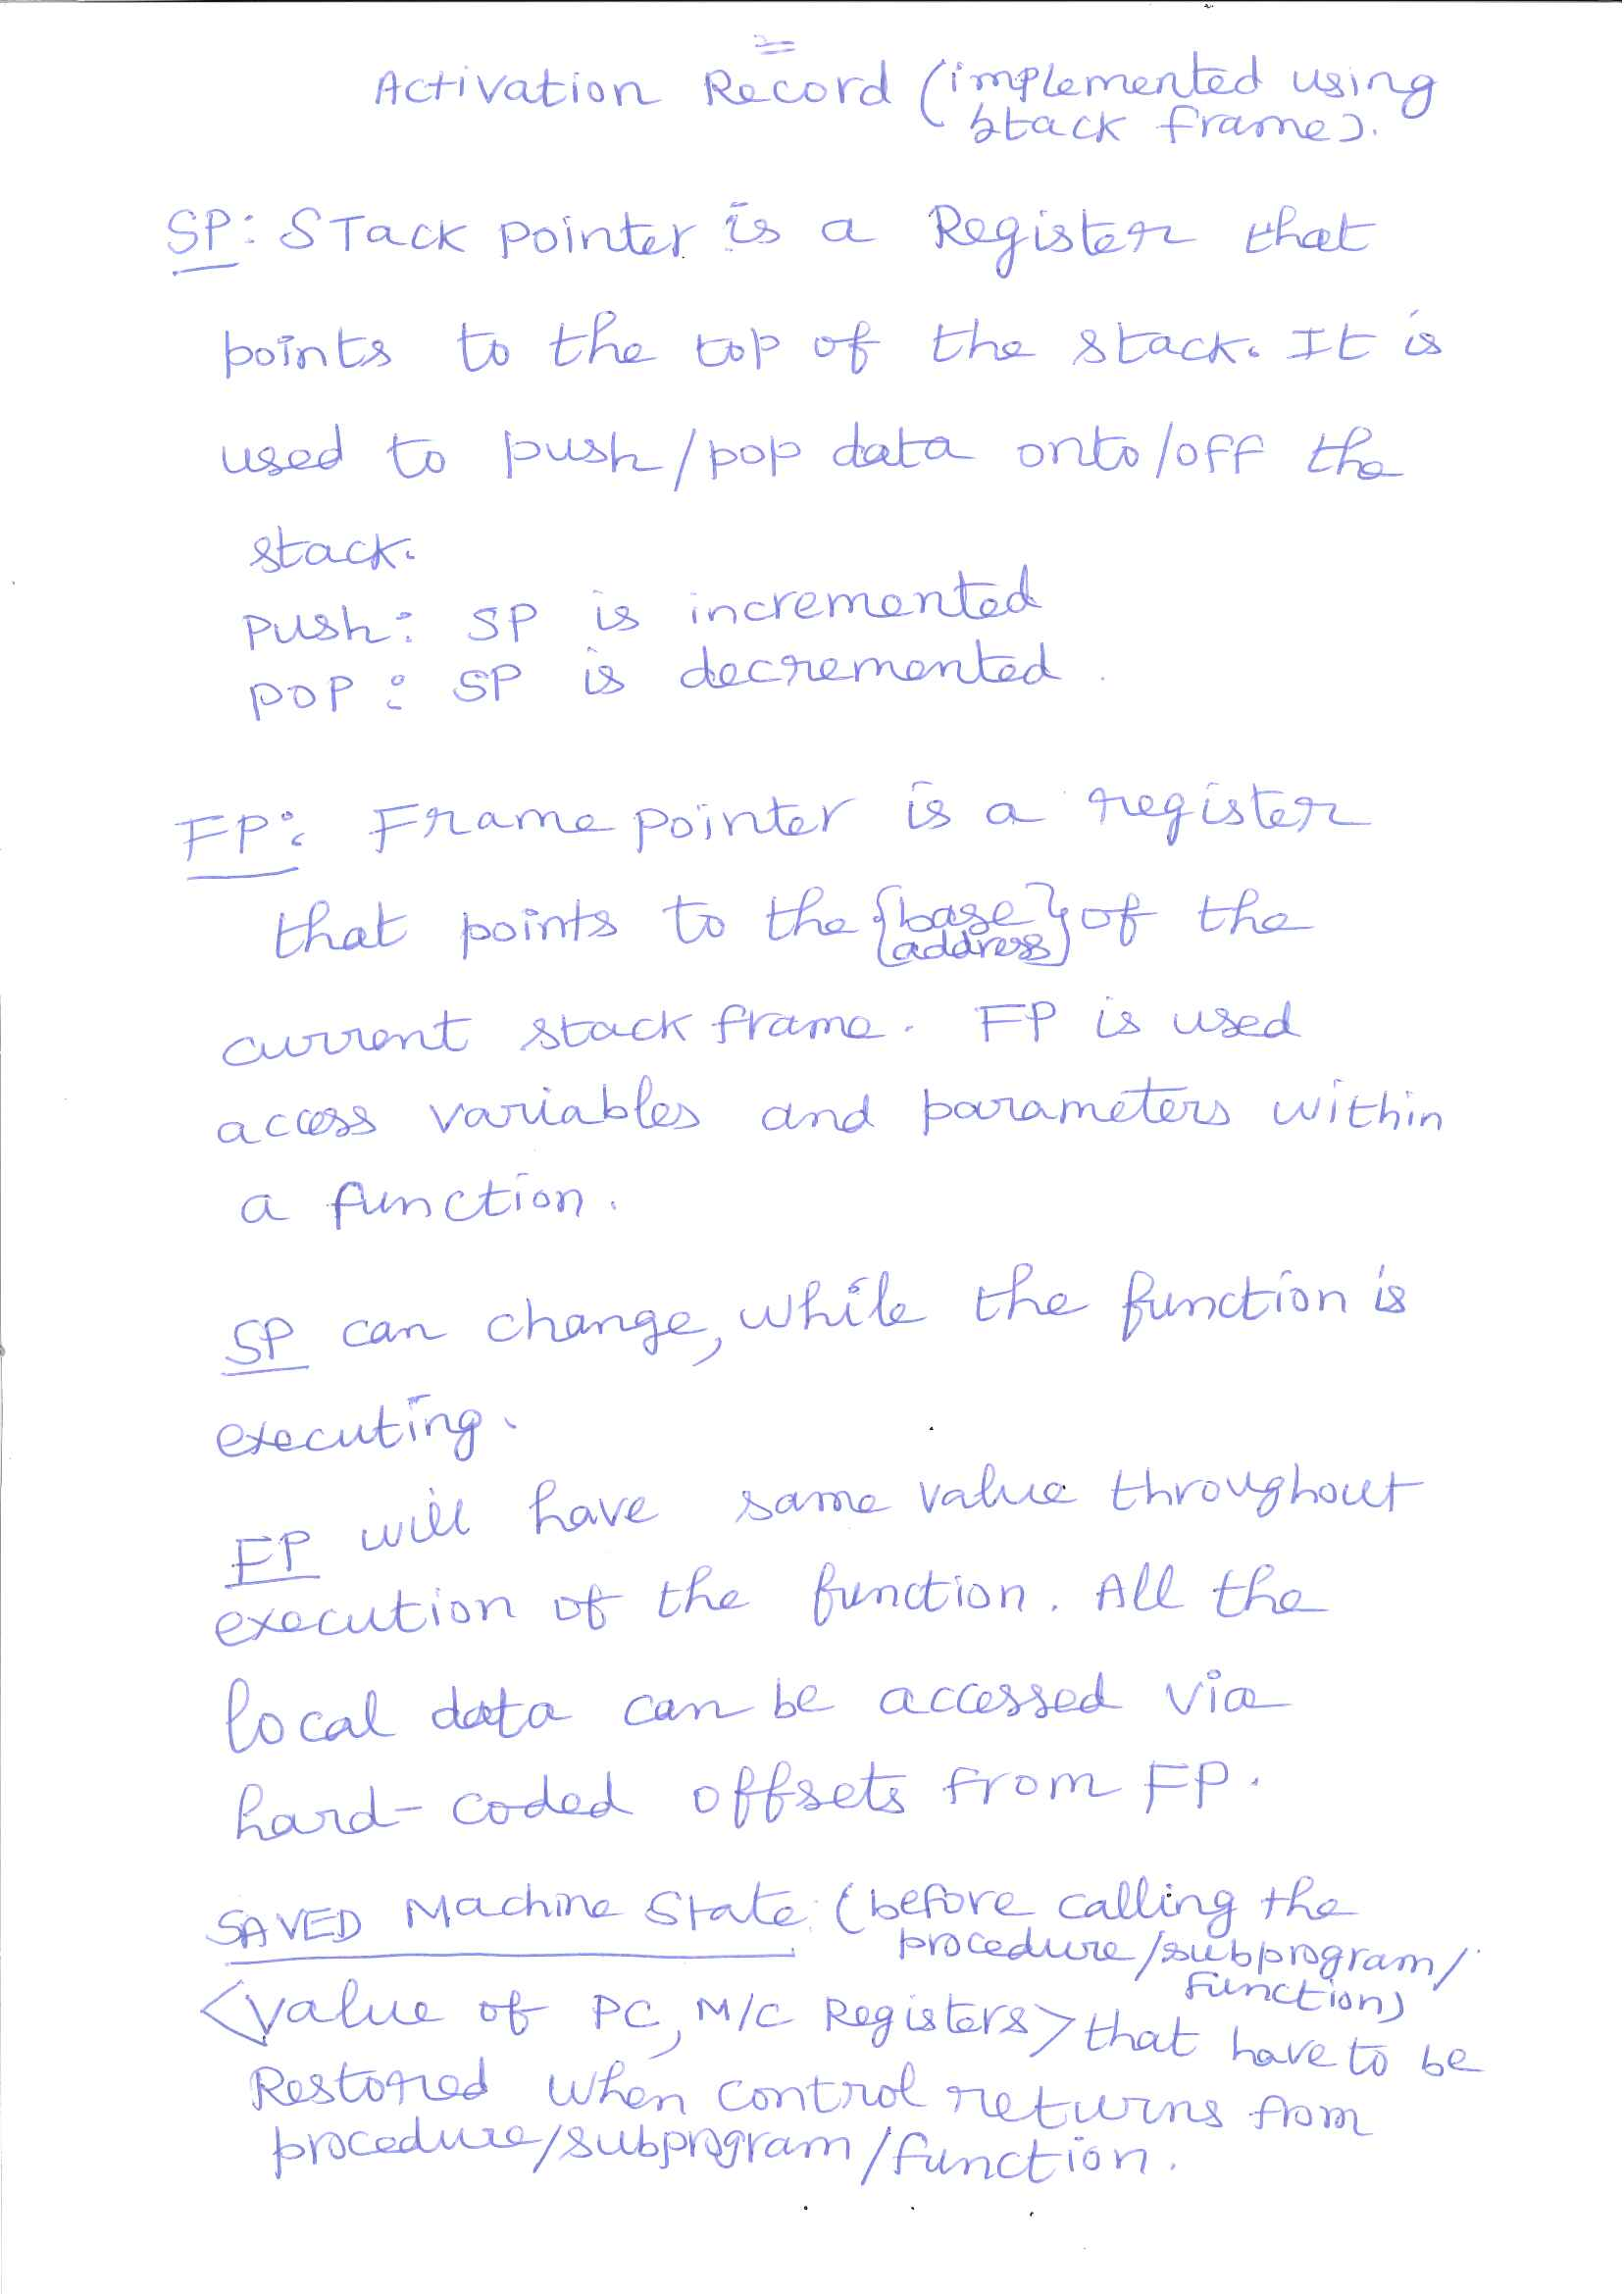 Activation Record (implemented using
stack frame).
SP: STack pointer is a Register that
points to the top of the stack. It is
used to push/pop data onto/off the
stack.
PUSh: SP is incremented
POP: SP is decremented.
FP: Frame pointer is a register
that points to the {base address} of the
current stack frame. FP is used
access variables and parameters within
a function.
SP can change, while the function is
executing.
FP will have same value throughout
execution of the function. All the
local data can be accessed via
hard-coded offsets from FP.
SAVED Machine State: (before calling the
procedure/subprogram/
function)
<Value of PC, M/C Registers> that have to be
Restored when control returns from
procedure/subprogram/function.